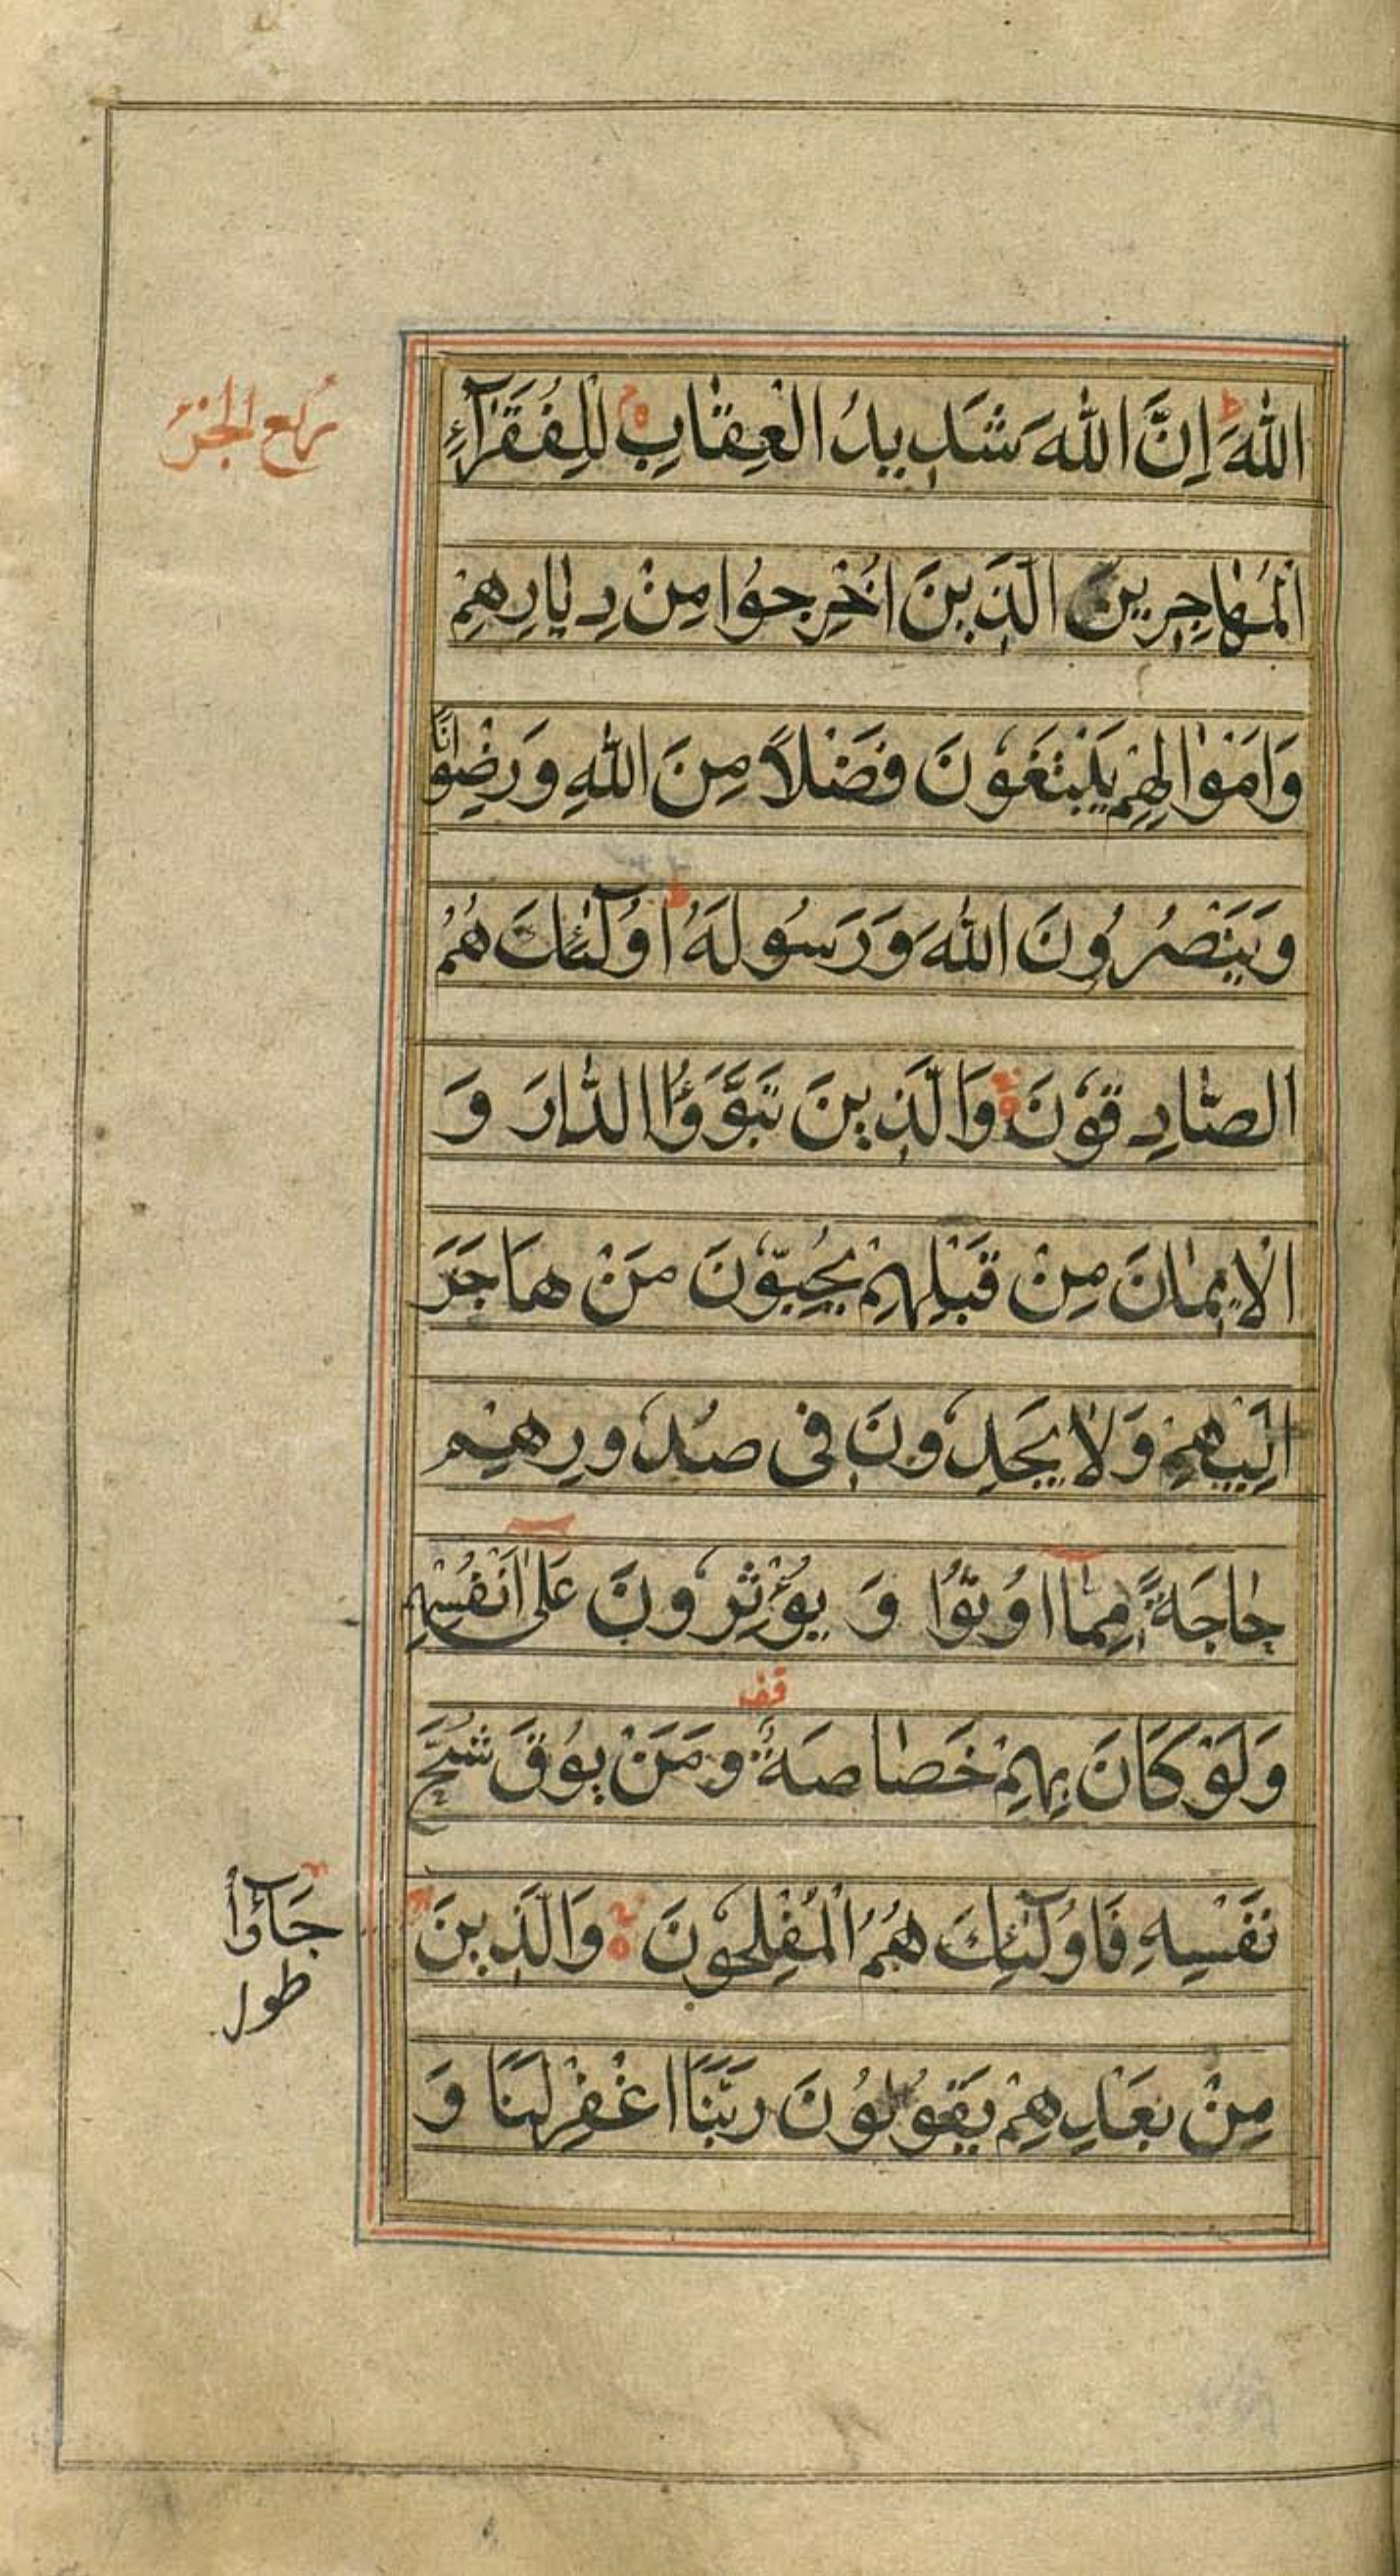 اللهَ اِنَّ اللهَ شَدِيدُ الْعِقٰابِ لِلْفُقَرٰآءِ
ربع الجزء
الْمُهٰاجِرِينَ الَّذِينَ اُخْرِجُوا مِنْ دِيٰارِهِمْ
وَاَمْوٰالِهِمْ يَبْتَغُونَ فَضْلاً مِنَ اللهِ وَرِضْوٰانًا
وَيَنْصُرُونَ اللهَ وَرَسُولَهُ اُولٰٓئِكَ هُمُ
الصّٰادِقُونَ وَالَّذِينَ تَبَوَّؤُا الدّٰارَ وَ
الْاِيمٰانَ مِنْ قَبْلِهِمْ يُحِبُّونَ مَنْ هَاجَرَ
اِلَيْهِمْ وَلٰا يَجِدُونَ فِى صُدُورِهِمْ
حٰاجَةً مِمّٰا اُوتُوا وَ يُؤْثِرُونَ عَلىٰ اَنْفُسِهِمْ
قف
وَلَوْ كَانَ بِهِمْ خَصٰاصَةٌ وَمَنْ يُوقَ شُحَّ
نَفْسِهِ فَاُولٰٓئِكَ هُمُ الْمُفْلِحُونَ وَالَّذِينَ
جَآؤُا
طول
مِنْ بَعْدِهِمْ يَقُولُونَ رَبَّنَا اغْفِرْ لَنَا وَ